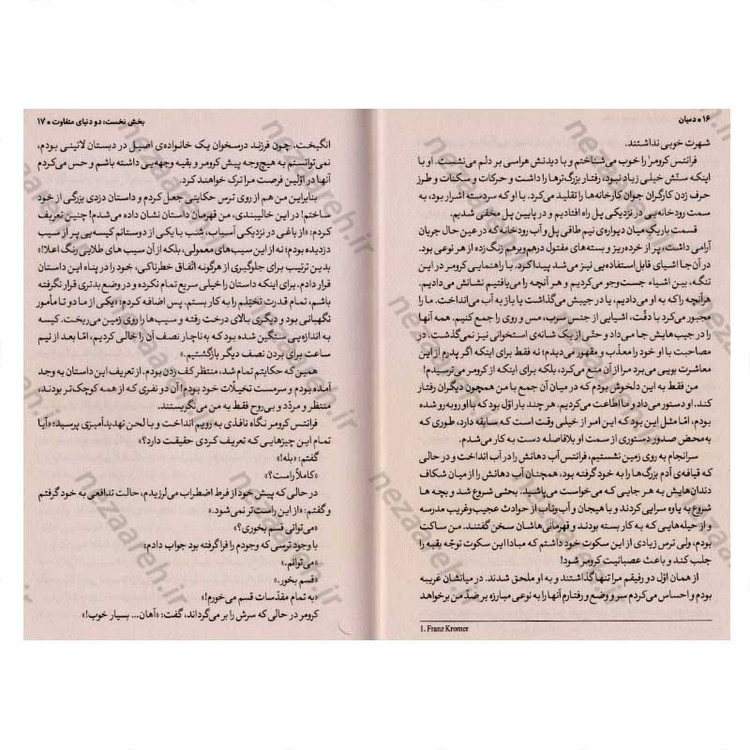 ۱۶ • دمیان
شهرت خوبی نداشتند.
فرانتس کرومر¹ را خوب می‌شناختم و با دیدنش هراسی بر دلم می‌نشست. او با
اینکه سنّش خیلی زیاد نبود، رفتار بزرگ‌ترها را داشت و حرکات و سکنات و طرز
حرف زدن کارگران جوان کارخانه‌ها را تقلید می‌کرد. با او که سردسته اشرار بود، به
سمت رودخانه‌یی در نزدیکی پل راه افتادیم و در پایین پل مخفی شدیم.
قسمت باریکِ میان دیواره‌ی نیم طاقی پل و آب رودخانه که در عین حال جریان
آرامی داشت، پر از خرده‌ریز و بسته‌های مفتول درهم وبرهم زنگ‌زده از هر نوعی بود.
در آن جا اشیای قابل استفاده‌یی نیز می‌شد پیدا کرد. با راهنمایی کرومر در این
تنگه، بین اشیاء جست‌وجو می‌کردیم و هر آنچه را می‌یافتیم نشانش می‌دادیم.
هر آنچه را که به او می‌دادیم، یا در جیبش می‌گذاشت یا باز به آب می‌انداخت. ما را
مجبور می‌کرد با دقّت، اشیایی از جنس سرب، مس و روی را جمع کنیم. همه آنها
را در جیب‌هایش جا می‌داد و حتّی از یک شانه‌ی استخوانی نیز نمی‌گذشت. در
مصاحبت با او خود را معذّب و مقهور می‌دیدم؛ نه فقط برای اینکه اگر پدرم از این
معاشرت بویی می‌برد مرا از آن منع می‌کرد، بلکه برای اینکه از کرومر می‌ترسیدم!
من فقط به این دلخوش بودم که در میان آن جمع با من همچون دیگران رفتار
کند. او دستور می‌داد و ما اطاعت می‌کردیم. هر چند بار اوّل بود که با او روبه‌رو شده
بودم، امّا مثل این بود که این امر از خیلی وقت است که سابقه دارد، طوری که
به‌محض صدور دستوری از سمت او بلافاصله دست به کار می‌شدم.
سرانجام به روی زمین نشستیم، فرانتس آب دهانش را در آب انداخت و در حالی
که قیافه‌ی آدم بزرگ‌ها را به خود گرفته بود، همچنان آب دهانش را از میان شکاف
دندان‌هایش به هر جایی که می‌خواست می‌پاشید. بحثی شروع شد و بچه ها
شروع به یاوه سرایی کردند و با هیجان و آب‌وتاب از حوادث عجیب‌وغریب مدرسه
و از حیله‌هایی که به کار بسته بودند و قهرمانی‌هاشان سخن گفتند. من ساکت
بودم، ولی ترس زیادی از این سکوت خود داشتم که مبادا این سکوت توجّه بقیه را
جلب کند و باعث عصبانیت کرومر شود!
از همان اوّل دو رفیقم مرا تنها گذاشتند و به او ملحق شدند. در میانشان غریبه
بودم و احساس می‌کردم سر و وضع و رفتارم آنها را به نوعی مبارزه بر ضدّ من برخواهد
1. Franz Kromer
بخش نخست: دو دنیای متفاوت • ۱۷
انگیخت. چون فرزند درسخوان یک خانواده‌ی اصیل در دبستان لاتینی بودم،
نمی‌توانستم به هیچ‌وجه پیش کرومر و بقیه وجهه‌یی داشته باشم و حس می‌کردم
آنها در اوّلین فرصت مرا ترک خواهند کرد.
بنابراین من هم از روی ترس حکایتی جعل کردم و داستان دزدی بزرگی از خود
ساختم! در این خالی‌بندی، من قهرمان داستان نشان داده می‌شدم! چنین تعریف
کردم: «از باغی در نزدیکی آسیاب، شب با یکی از دوستانم کیسه‌یی پر از سیب
دزدیده بودم؛ نه از این سیب‌های معمولی، بلکه از آن سیب های طلایی رنگ اعلا!»
بدین ترتیب برای جلوگیری از هرگونه اتّفاق خطرناکی، خود را در پناه این داستان
قرار دادم. برای اینکه داستان را خیلی سریع تمام نکرده و در وضع بدتری قرار نگرفته
باشم، تمام قدرت تخیّلم را به کار بستم. پس اضافه کردم: «یکی از ما دو تا مأمور
نگهبانی بود و دیگری بالای درخت رفته و سیب‌ها را روی زمین می‌ریخت. کیسه
به اندازه‌یی سنگین شده بود که به‌ناچار نصف آن را خالی کردیم، امّا بعد از نیم
ساعت برای بردن نصف دیگر بازگشتیم.»
همین که حکایتم تمام شد، منتظر کف زدن بودم. از تعریف این داستان به وجد
آمده بودم و سرمست تخیلّات خود بودم! آن دو نفری که از همه کوچک‌تر بودند،
منتظر و مردّد و بی‌روح فقط به من می‌نگریستند.
فرانتس کرومر نگاه نافذی به رویم انداخت و با لحن تهدیدآمیزی پرسید: «آیا
تمام این چیزهایی که تعریف کردی حقیقت دارد؟»
گفتم: «بله!»
«کاملاً راست؟»
در حالی که پیش خود از فرط اضطراب می‌لرزیدم، حالت تدافعی به خود گرفتم
و گفتم: «از این راست‌تر نمی‌شود.»
«می‌توانی قسم بخوری؟»
با وجود ترسی که وجودم را فرا گرفته بود جواب دادم:
«می‌توانم.»
«قسم بخور.»
«به تمام مقدّسات قسم می‌خورم!»
کرومر در حالی که سرش را بر می‌گرداند، گفت: «آهان... بسیار خوب!»
nezaareh.ir